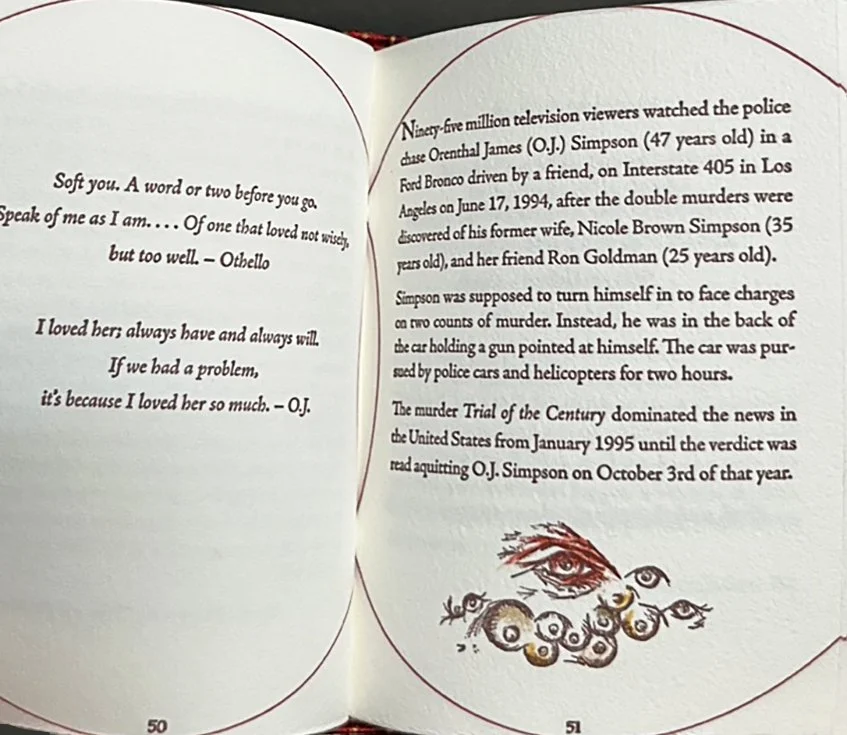 Soft you. A word or two before you go.
Speak of me as I am. . . . Of one that loved not wisely,
but too well. – Othello
I loved her; always have and always will.
If we had a problem,
it's because I loved her so much. – O.J.
50
Ninety-five million television viewers watched the police
chase Orenthal James (O.J.) Simpson (47 years old) in a
Ford Bronco driven by a friend, on Interstate 405 in Los
Angeles on June 17, 1994, after the double murders were
discovered of his former wife, Nicole Brown Simpson (35
years old), and her friend Ron Goldman (25 years old).
Simpson was supposed to turn himself in to face charges
on two counts of murder. Instead, he was in the back of
the car holding a gun pointed at himself. The car was pur-
sued by police cars and helicopters for two hours.
The murder Trial of the Century dominated the news in
the United States from January 1995 until the verdict was
read aquitting O.J. Simpson on October 3rd of that year.
51